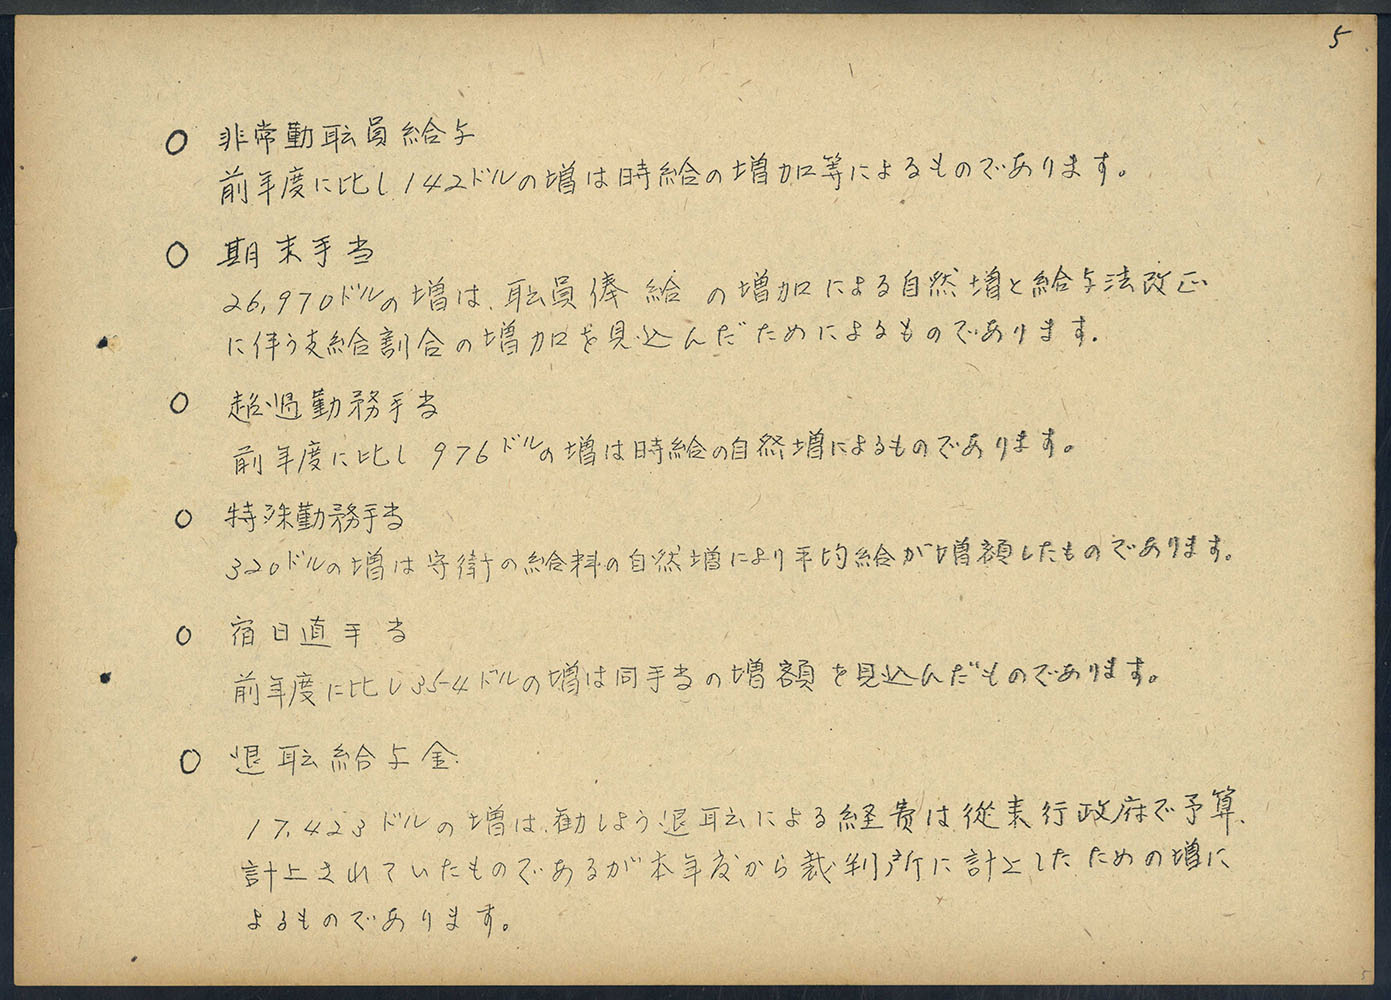 5
○ 非常勤職員給与
前年度に比し142ドルの増は時給の増加等によるものであります。
○ 期末手当
26,970ドルの増は、職員俸給の増加による自然増と給与法改正
に伴う支給割合の増加を見込んだためによるものであります.
○ 超過勤務手当
前年度に比し976ドルの増は時給の自然増によるものであります。
○ 特殊勤務手当
320ドルの増は守衛の給料の自然増により平均給が増額したものであります。
○ 宿日直手当
前年度に比し354ドルの増は同手当の増額を見込んだものであります。
○ 退職給与金
17,423ドルの増は、勧しよう退職による経費は従来行政府で予算、
計上されていたものであるが本年度から裁判所に計上したための増に
よるものであります。
5